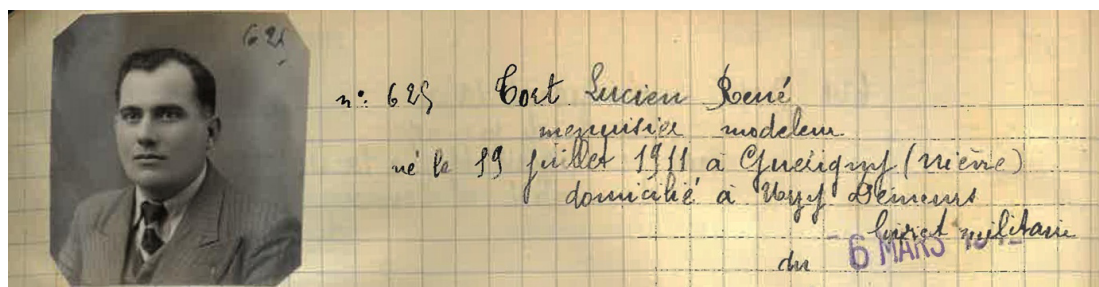 625
n°: 625 Tort Lucien René
menuisier modeleur
né le 19 juillet 1911 à Guérigny (Nièvre)
domicilié à
livret militaire
du 6 MARS